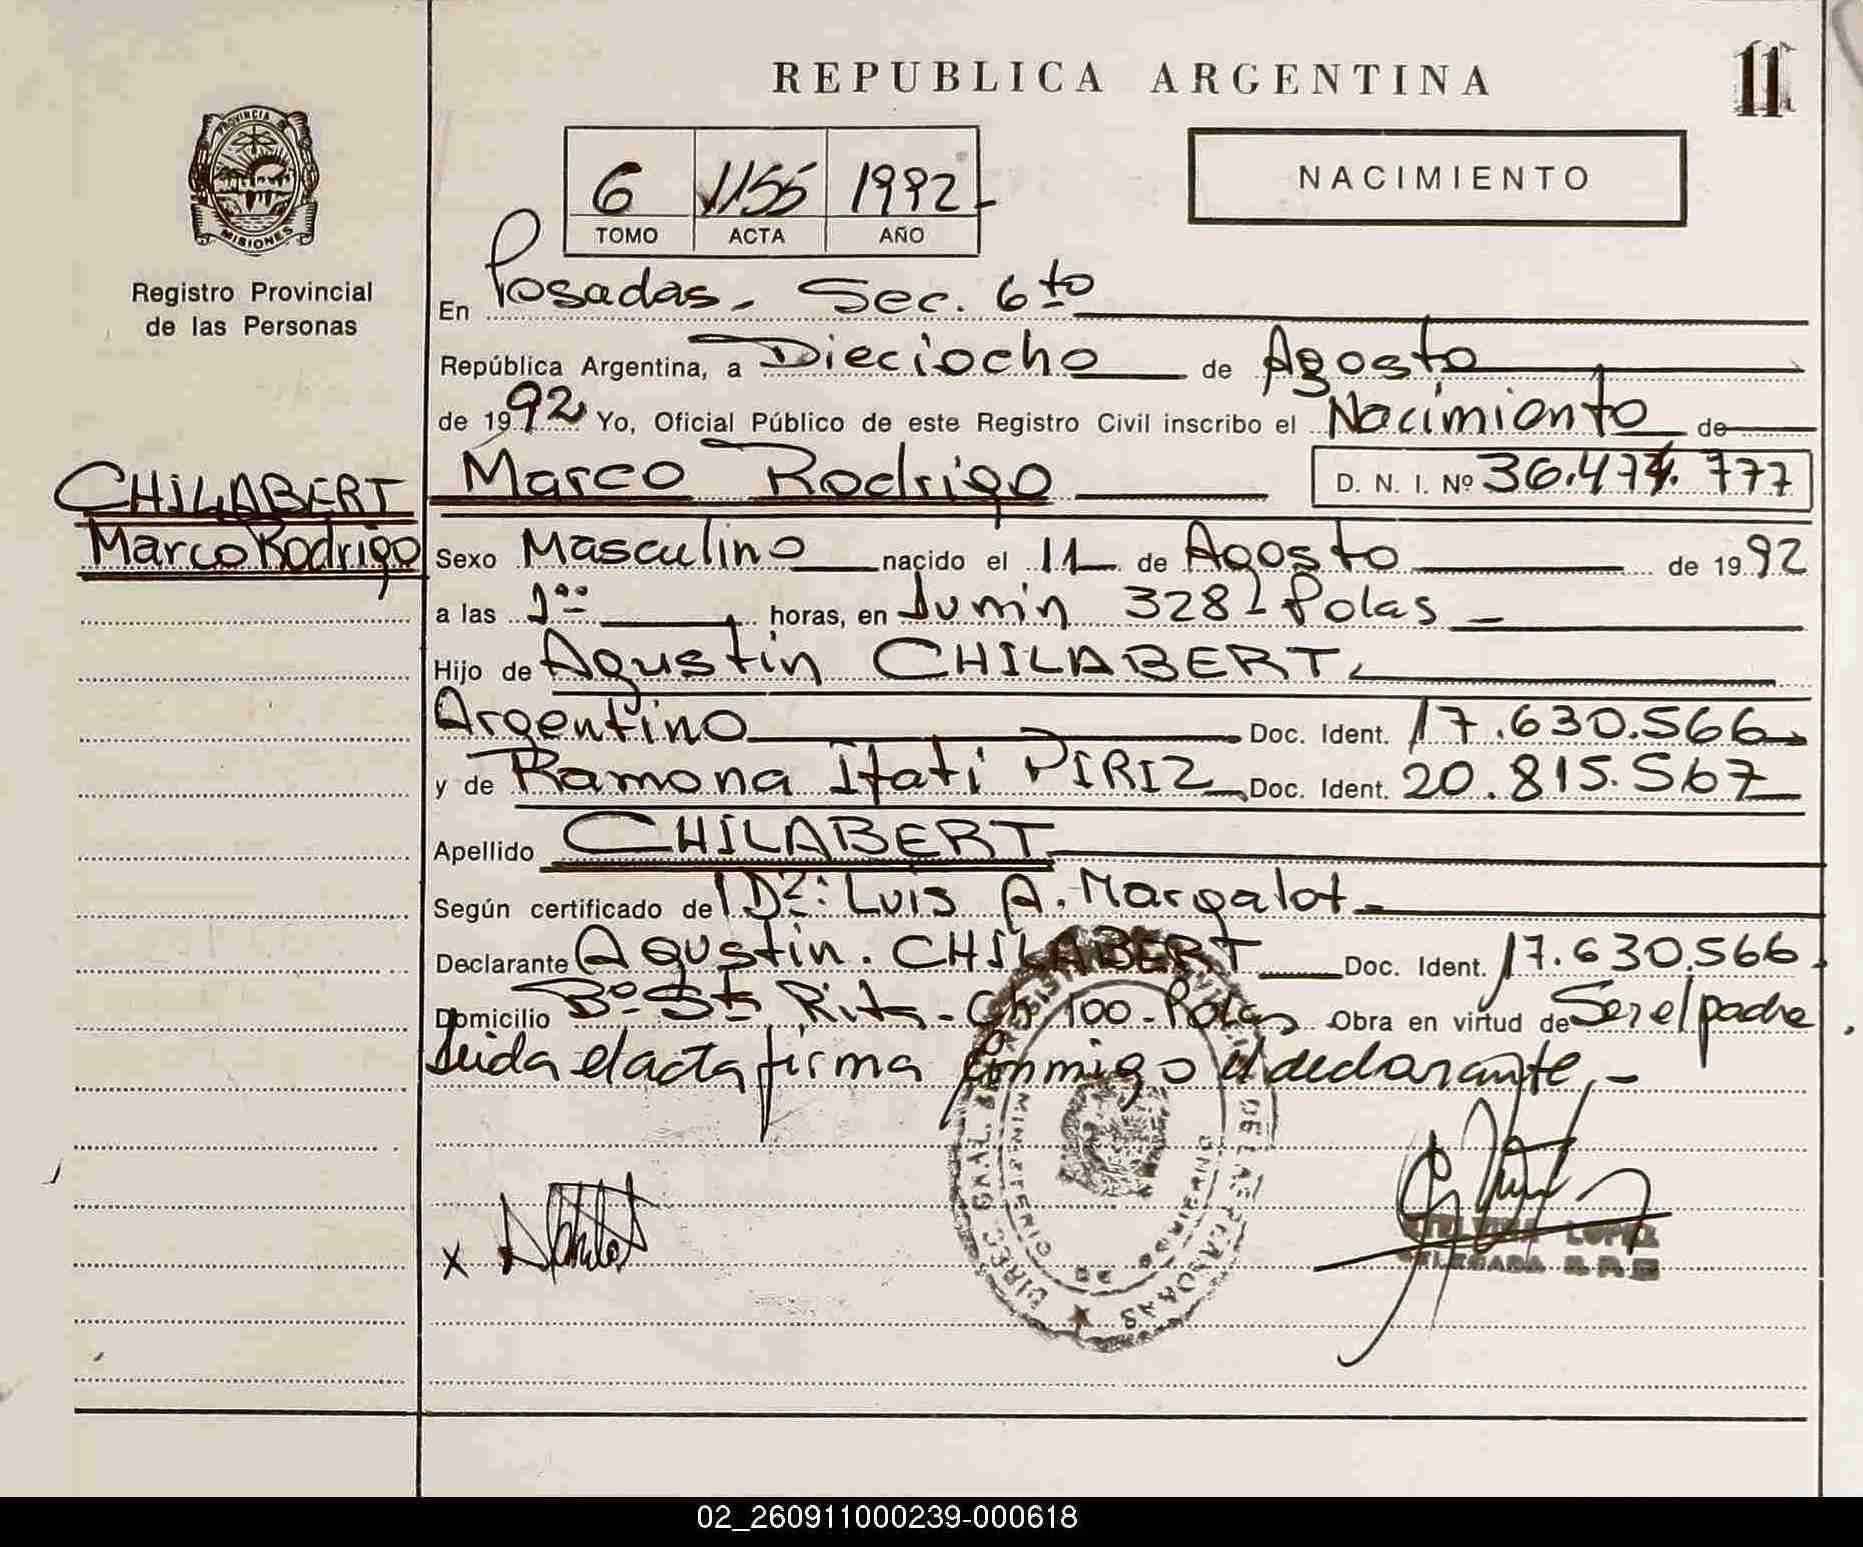 REPUBLICA ARGENTINA
11
PROVINCIA DE
MISIONES
Registro Provincial
de las Personas
6 1155 1992
TOMO ACTA AÑO
NACIMIENTO
En Posadas - Sec. 6to
República Argentina, a Dieciocho de Agosto
de 1992 Yo, Oficial Público de este Registro Civil inscribo el Nacimiento de
CHILABERT
Marco Rodrigo
Marco Rodrigo D. N. I. Nº 36.474.777
Sexo Masculino nacido el 11 de Agosto de 1992
a las 1:00 horas, en Junin 328 - Pdas -
Hijo de Agustin CHILABERT
Argentino Doc. Ident. 17.630.566
y de Ramona Itati PIRIZ Doc. Ident. 20.815.567
Apellido CHILABERT
Según certificado de Dr: Luis A. Margalot -
Declarante Agustin. CHILABERT Doc. Ident. 17.630.566
Domicilio Bº Sta Rita - Ch 100 - Pdas Obra en virtud de Ser el padre
Leida el acta firma conmigo el declarante -
x
DIREC. GRAL. DE LAS PERSONAS
MINISTERIO DE GOBIERNO
LOPEZ
DELEGADA R.P.P.
02_260911000239-000618